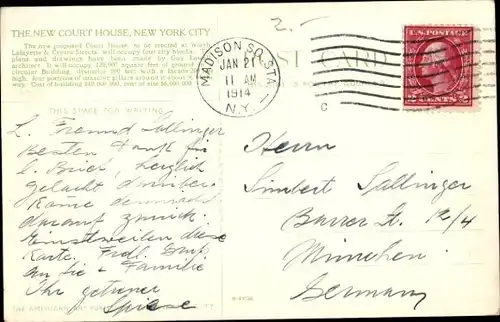 THE NEW COURT HOUSE, NEW YORK CITY
The new proposed Court House, to be erected at Worth,
Lafayette & Streets. Will occupy four city blocks.
plans and drawings have been made by Guy
architect. It will occupy square feet of ground
circular Building; diameter 500 feet with a facade
high, four porticos of massive pillars
way. Cost of building $10,000,000, cost of site $6,000,000.
2.-
POST CARD
MADISON SQ. STA.
JAN 21
11 AM
1914
N.Y.
C
U.S. POSTAGE
2 CENTS 2
THIS SPACE FOR WRITING
L. Freund Sallinger
Besten Dank für
l. Brief, herzlich
gelacht darüber.
Komme demnächst
darauf zurück.
Einstweilen diese
Karte. Frdl. Gruß
an Sie & Familie
Ihr getreuer
Herrn
Simbert Sallinger
Barrer St. 12/4
München
Germany
THE AMERICAN ART CITY